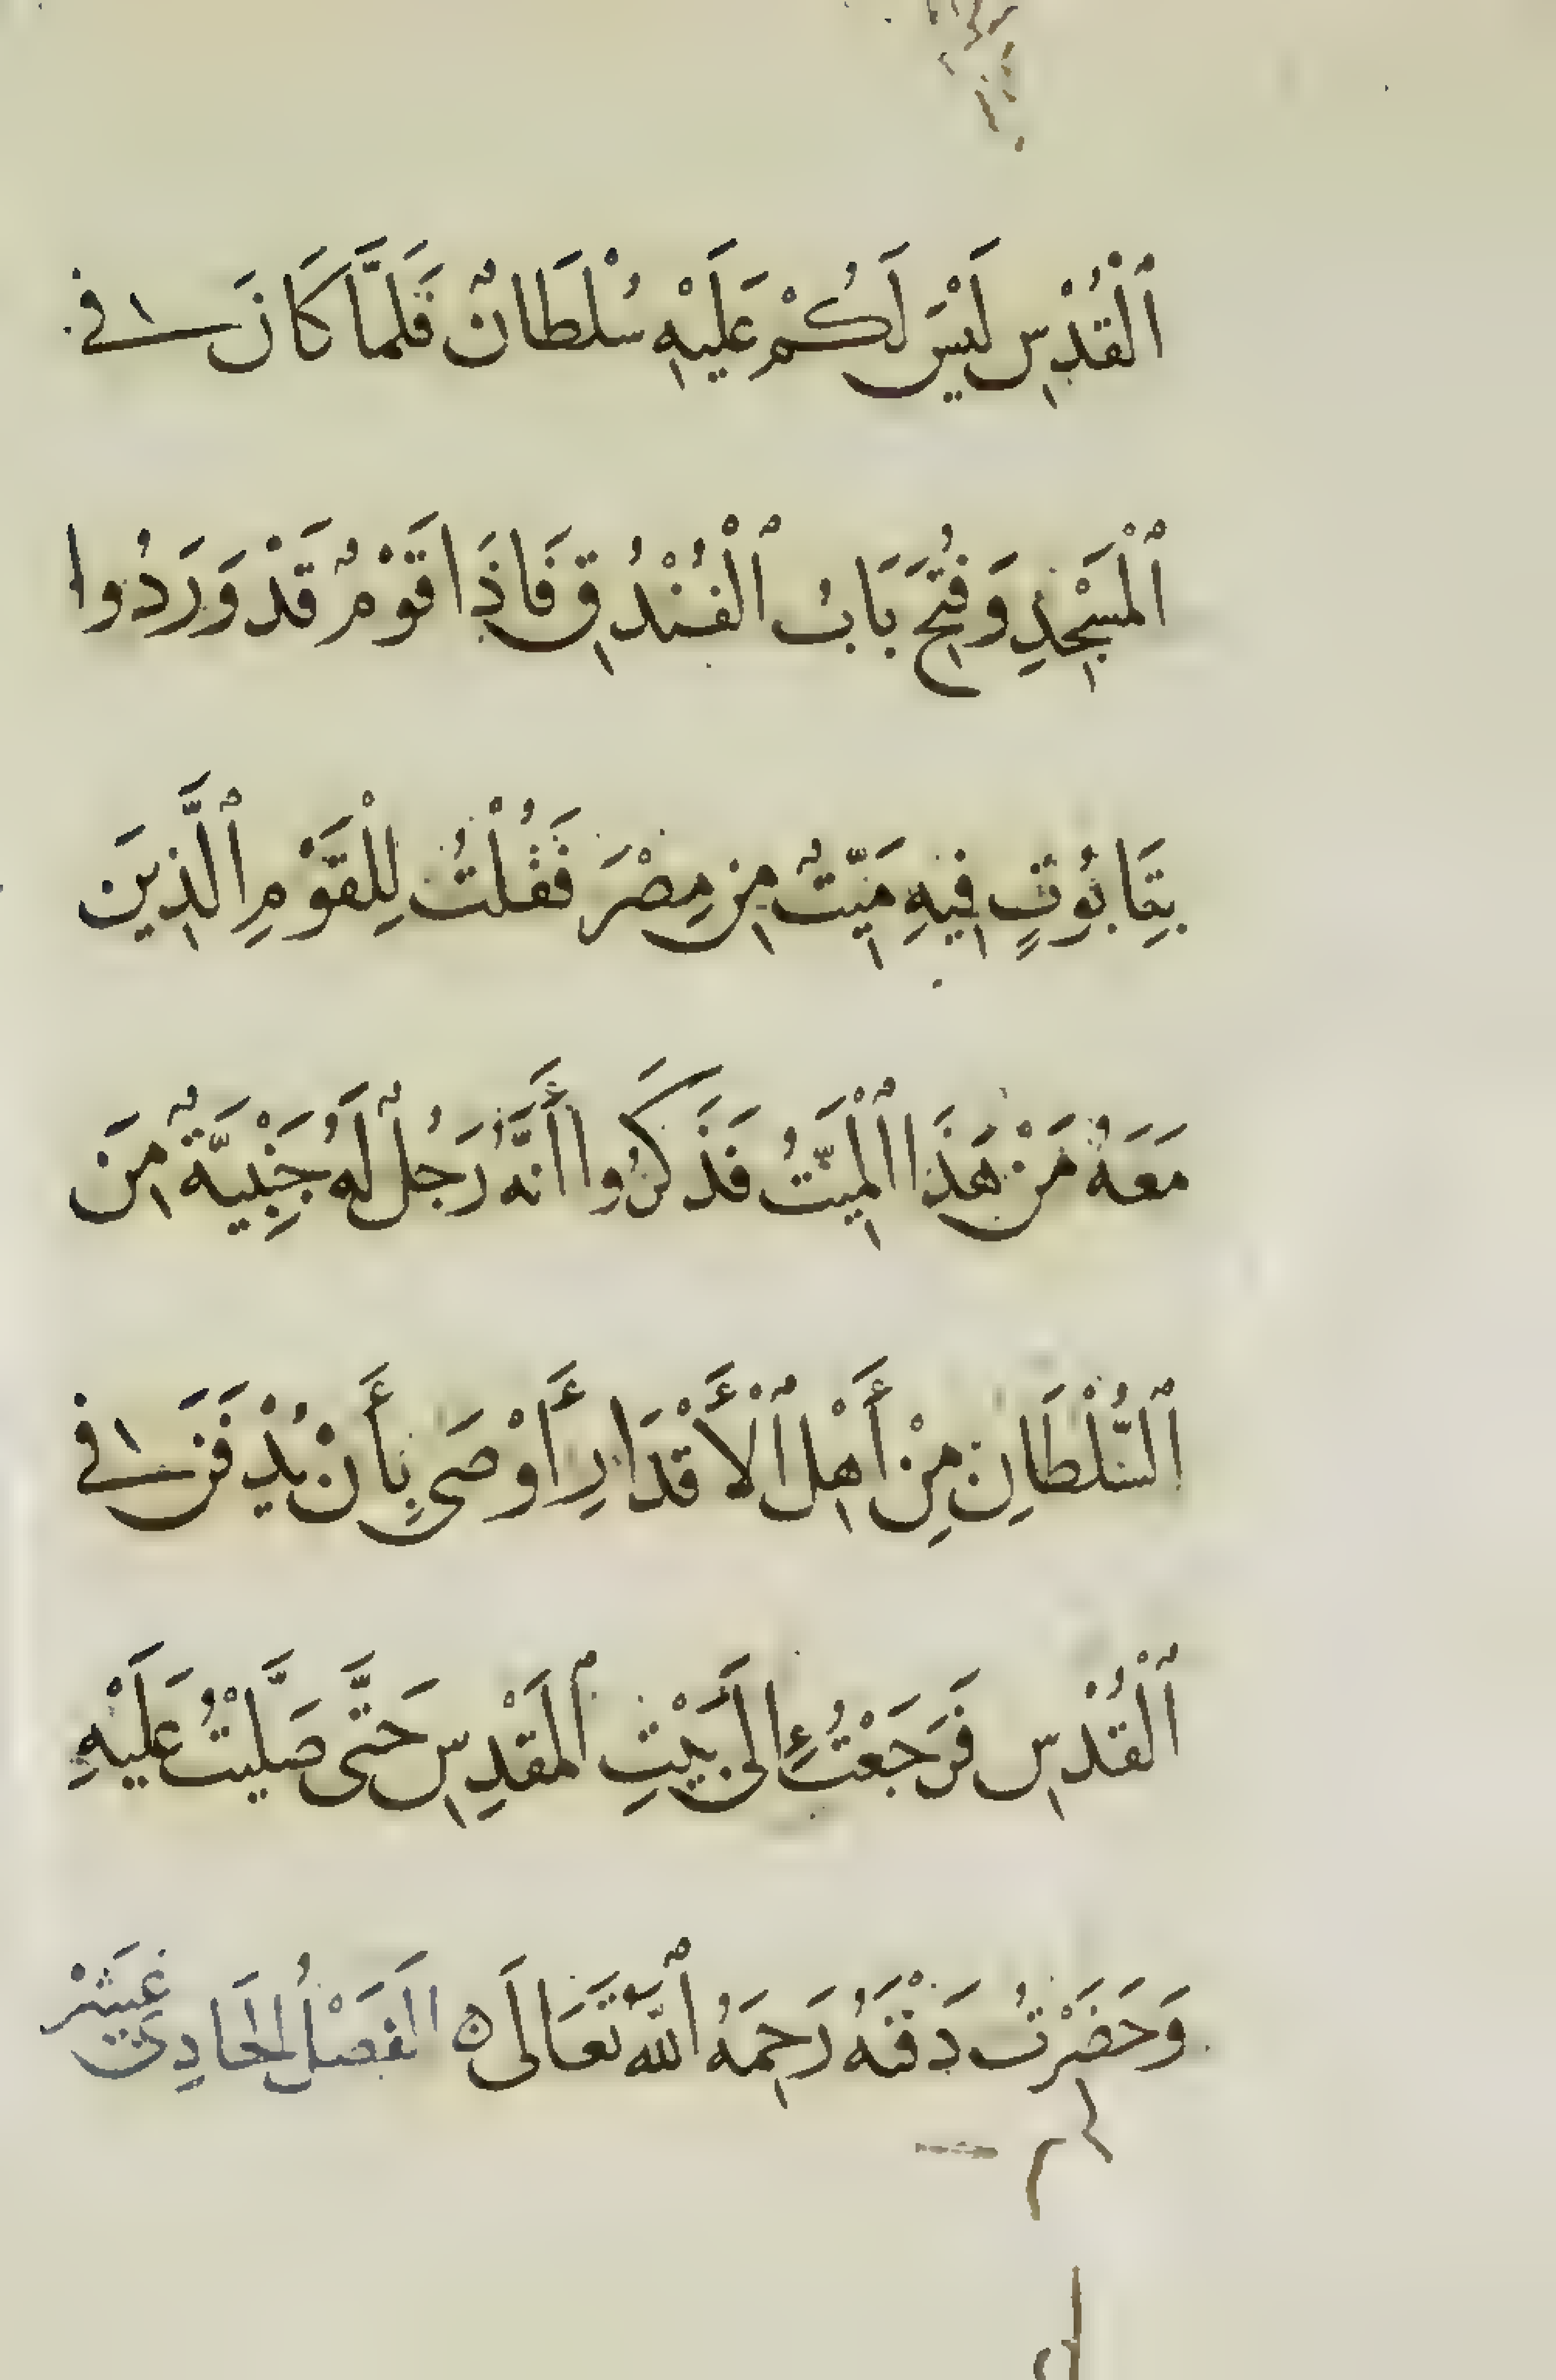 ٱلْقُدْسِ لَيْسَ لَكُمْ عَلَيْهِ سُلْطَانٌ فَلَمَّا كَانَ فِي
ٱلْمَسْجِدِ وَفُتِحَ بَابُ ٱلْفُنْدُقِ فَاذَا قَوْمٌ قَدْ وَرَدُوا
بِتَابُوتٍ فِيهِ مَيِّتٌ مِن مِصْرَ فَقُلْتُ لِلْقَوْمِ ٱلَّذِينَ
مَعَهُ مَنْ هَذَا ٱلْمَيِّتُ فَذَكَرُوا أَنَّهُ رَجُلٌ لَهُ جَنْبِيَّةٌ مِنَ
ٱلسُّلْطَانِ مِنْ أَهْلِ ٱلْأَقْدَارِ أَوْصَى بِأَنْ يُدْفَنَ فِي
ٱلْقُدْسِ فَرَجَعْتُ إِلَى بَيْتِ ٱلمَقْدِسِ حَتَّى صَلَّيْتُ عَلَيْهِ
وَحَضَرْتُ دَفْنَهُ رَحِمَهُ ٱللَّهُ تَعَالَى ه الفَصْلُ الحَادِيَ عَشَرْ